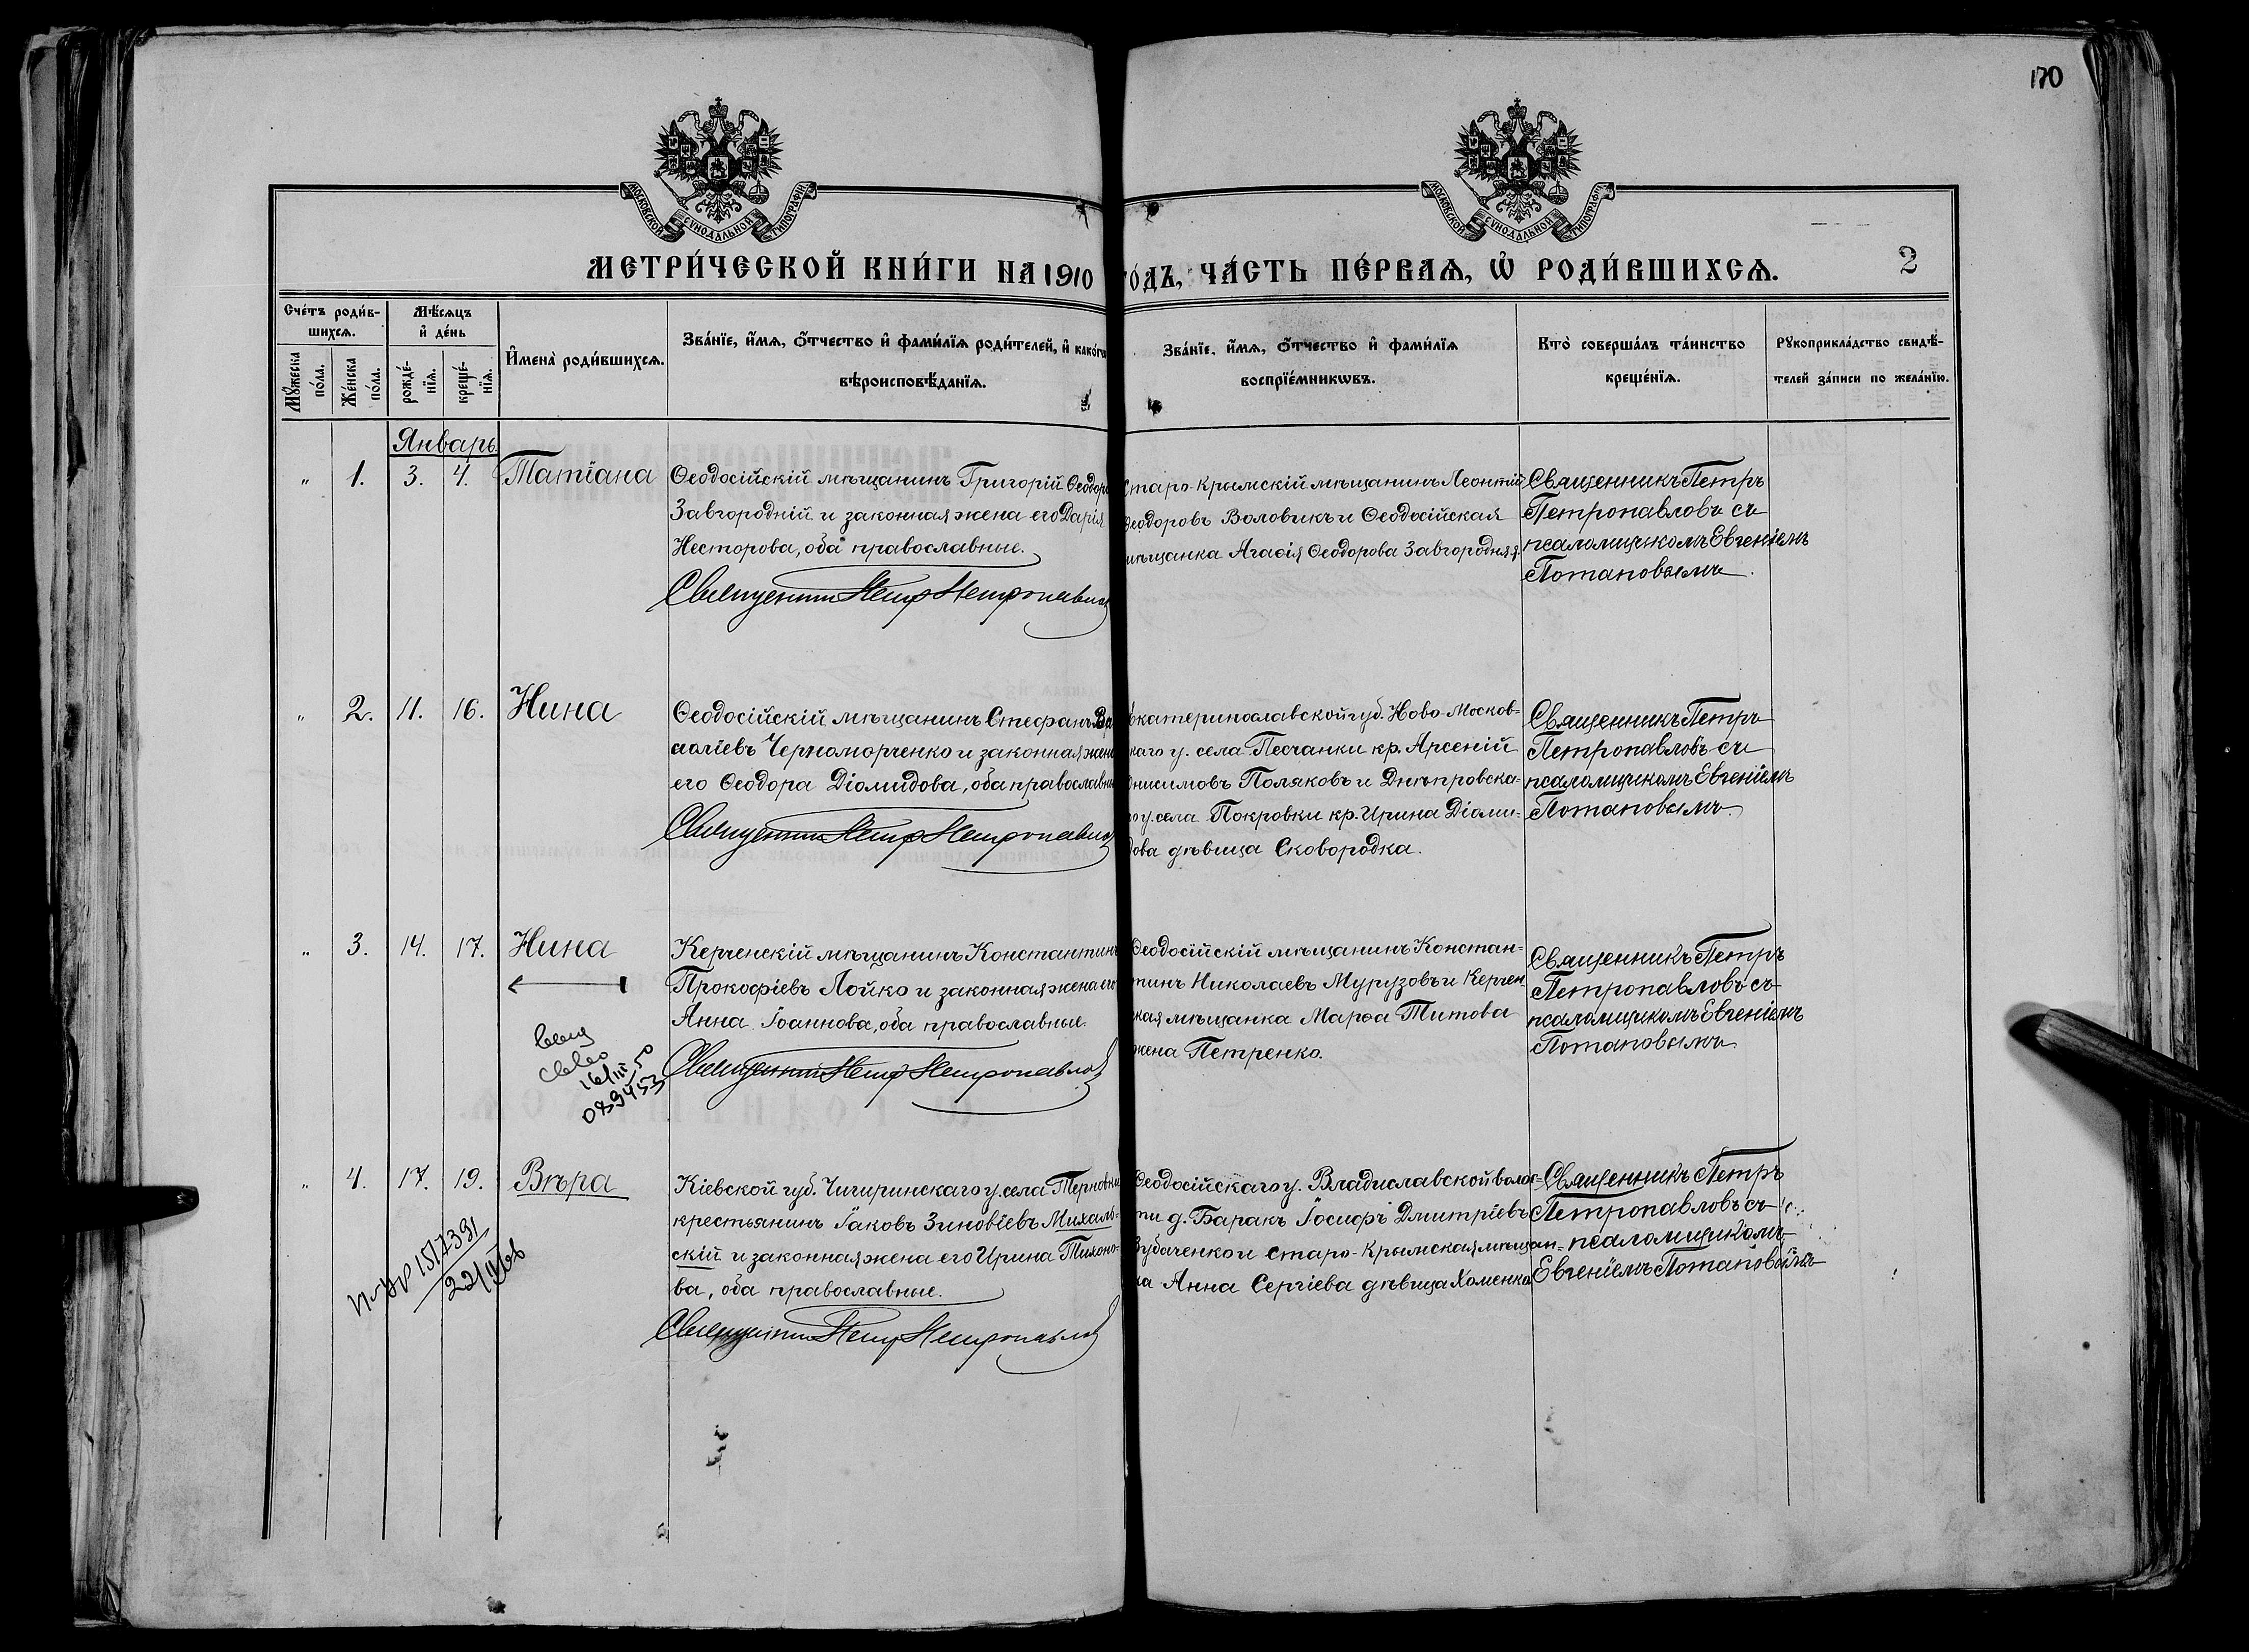 170
МОСКОВСКОЙ СУНОДАЛЬНОЙ ТИПОГРАФІИ
МОСКОВСКОЙ СУНОДАЛЬНОЙ ТИПОГРАФІИ
МЕТРИ́ЧЕСКОЙ КНИ́ГИ НА 1910
ГО́ДЪ, ЧА́СТЬ ПЕ́РВАѦ, Ѽ РОДИ́ВШИХСѦ.
2
Сче́тъ роди́в-
шихсѧ.
Мѣ́сѧцъ
и҆ де́нь
Мꙋ́жеска по́ла.
Же́нска по́ла.
рожде́-нїѧ.
креще́-нїѧ.
И҆мена̀ роди́вшихсѧ.
Зва́нїе, и҆́мѧ, ѻ҆́тчество и҆ фами́лїѧ роди́телей, и҆ како́гѡ
вѣроисповѣ́данїѧ.
Зва́нїе, и҆́мѧ, ѻ҆́тчество и҆ фами́лїѧ
воспрїе́мникѡвъ.
Кто̀ соверша́лъ та́инство
креще́нїѧ.
Рꙋкоприкла́дство свидѣ́-
телей за́писи по жела́нїю.
Январь
" 1. 3. 4. Татіана
Ѳеодосійскій мѣщанинъ Григорій Ѳеодоро
Завгородній и законная жена его Дарія
Несторова, оба православные.
Священникъ Петръ Петропавлов
Старо-Крымскій мѣщанинъ Леонтій
Ѳеодоровъ Воловикъ и Ѳеодосійская
мѣщанка Агаѳія Ѳеодорова Завгородняя.
Священникъ Петръ
Петропавловъ съ
псаломщикомъ Евгеніемъ
Потаповымъ.
" 2. 11. 16. Нина
Ѳеодосійскій мѣщанинъ Стефанъ Ва
силіевъ Черноморченко и законная жена
его Ѳеодора Діомидова, оба православные
Священникъ Петръ Петропавлов
Екатеринославской губ. Ново-Москов=
скаго у. села Песчанки кр. Арсеній
Онисимовъ Поляковъ и Днѣпровска=
го у. села Покровки кр. Ирина Діоми=
дова дѣвица Сковородка.
Священникъ Петръ
Петропавловъ съ
псаломщикомъ Евгеніемъ
Потаповымъ.
" 3. 14. 17. Нина
Керченскій мѣщанинъ Константинъ
Прокофіевъ Лойко и законная жена его
Анна Іоаннова, оба православные.
Священникъ Петръ Петропавлов
Ѳеодосійскій мѣщанинъ Констан=
тинъ Николаевъ Мурузовъ и Керчен
ская мѣщанка Марѳа Титова
жена Петренко.
Священникъ Петръ
Петропавловъ съ
псаломщикомъ Евгеніемъ
Потаповымъ
16/III 50
089453
" 4. 17. 19. Вѣра
Кіевской губ. Чигиринскаго у. села Терновки
крестьянинъ Іаковъ Зиновіевъ Михаль=
скій и законная жена его Ирина Тихоно=
ва, оба православные.
Священникъ Петръ Петропавлов
Ѳеодосійскаго у. Владиславской волос=
ти д. Баракъ Іосифъ Дмитріевъ
Зубаченко и Старо-Крымская мѣщан=
ка Анна Сергіева дѣвица Хоменко
Священникъ Петръ
Петропавловъ съ
псаломщикомъ
Евгеніемъ Потаповымъ